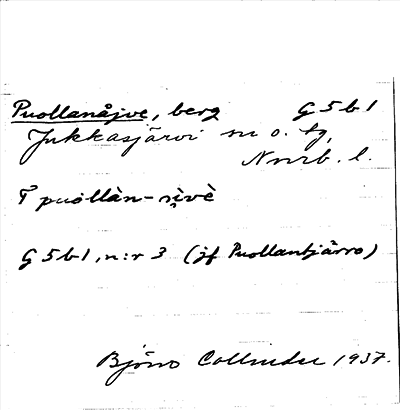 Puollanåjve, berg G5b1
Jukkasjärvi sn o. tg,
Nnrb. l.
G5b1, n:r 3 (jf Puollantjårro)
Björn Collinder 1937.